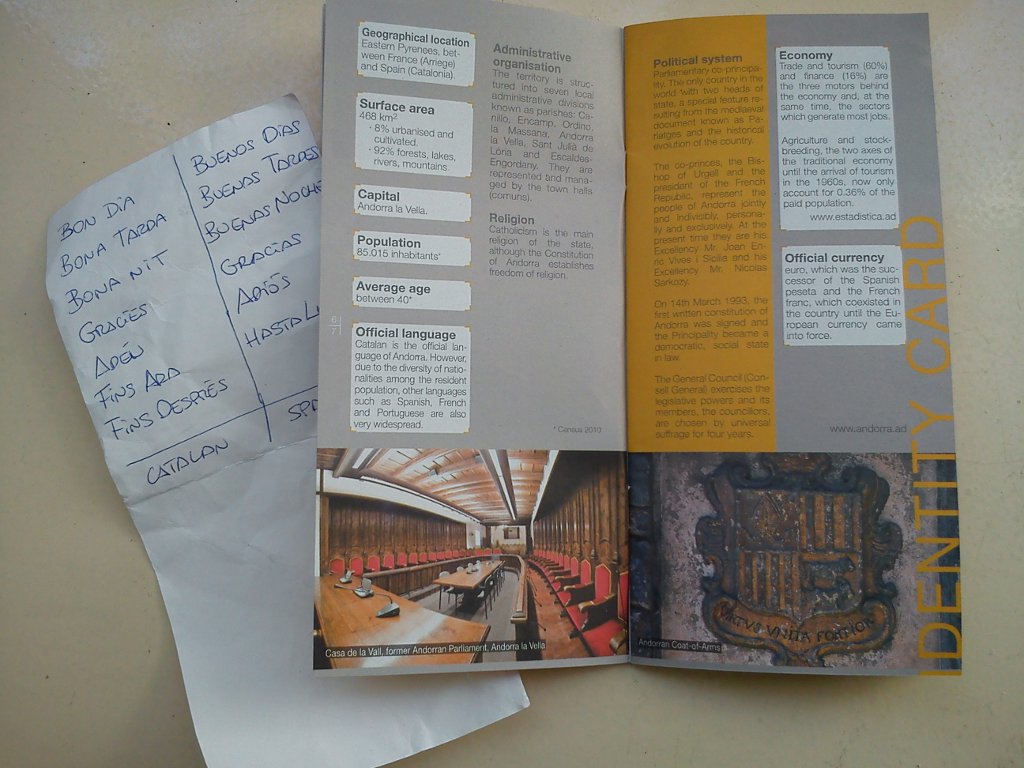 BON DIA
BONA TARDA
BONA NIT
GRACIES
ADÉU
FINS ARA
FINS DESPRÉS
CATALAN
BUENOS DIAS
BUENAS TARDES
BUENAS NOCHE
GRACIAS
ADIÓS
HASTA L
SPA
Geographical location
Eastern Pyrenees, bet-
ween France (Arriege)
and Spain (Catalonia).
Surface area
468 km²
· 8% urbanised and
cultivated.
· 92% forests, lakes,
rivers, mountains.
Capital
Andorra la Vella.
Population
85,015 inhabitants*
Average age
between 40*
Official language
Catalan is the official lan-
guage of Andorra. However,
due to the diversity of natio-
nalities among the resident
population, other languages
such as Spanish, French
and Portuguese are also
very widespread.
Administrative
organisation
The territory is struc-
tured into seven local
administrative divisions
known as parishes: Ca-
nillo, Encamp, Ordino,
la Massana, Andorra
la Vella, Sant Julià de
Lòria and Escaldes-
Engordany. They are
represented and mana-
ged by the town halls
(comuns).
Religion
Catholicism is the main
religion of the state,
although the Constitution
of Andorra establishes
freedom of religion.
* Census 2010
6|7
Casa de la Vall, former Andorran Parliament, Andorra la Vella
Political system
Parliamentary co-principa-
lity. The only country in the
world with two heads of
state, a special feature re-
sulting from the mediaeval
document known as Pa-
riatges and the historical
evolution of the country.
The co-princes, the Bis-
hop of Urgell and the
president of the French
Republic, represent the
people of Andorra jointly
and indivisibly, persona-
lly and exclusively. At the
present time they are his
Excellency Mr. Joan En-
ric Vives i Sicilia and his
Excellency Mr. Nicolas
Sarkozy.
On 14th March 1993, the
first written constitution of
Andorra was signed and
the Principality became a
democratic, social state
in law.
The General Council (Con-
sell General) exercises the
legislative powers and its
members, the councillors,
are chosen by universal
suffrage for four years.
Economy
Trade and tourism (60%)
and finance (16%) are
the three motors behind
the economy and, at the
same time, the sectors
which generate most jobs.
Agriculture and stock-
breeding, the two axes of
the traditional economy
until the arrival of tourism
in the 1960s, now only
account for 0.36% of the
paid population.
www.estadistica.ad
Official currency
euro, which was the suc-
cessor of the Spanish
peseta and the French
franc, which coexisted in
the country until the Eu-
ropean currency came
into force.
www.andorra.ad
IDENTITY CARD
VIRTVS VNITA FORTIOR
Andorran Coat-of-Arms